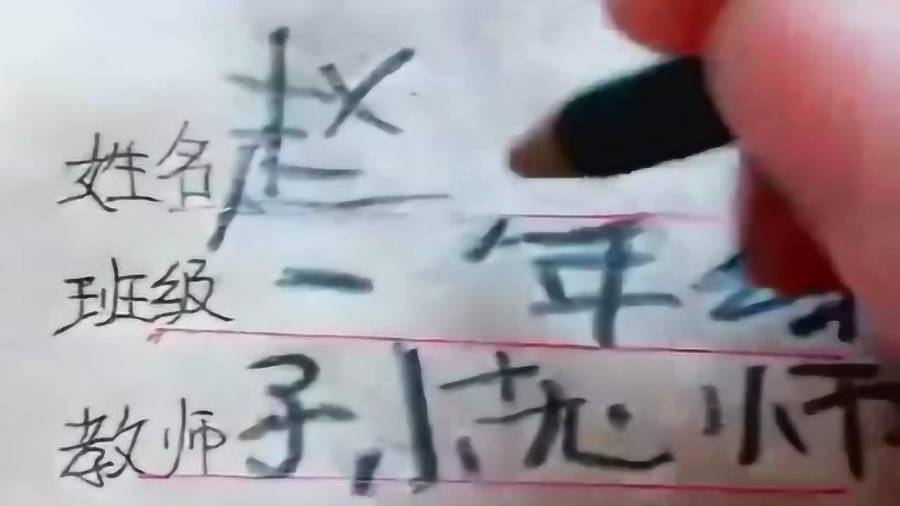 姓名 赵
班级 一年
教师 孙老师